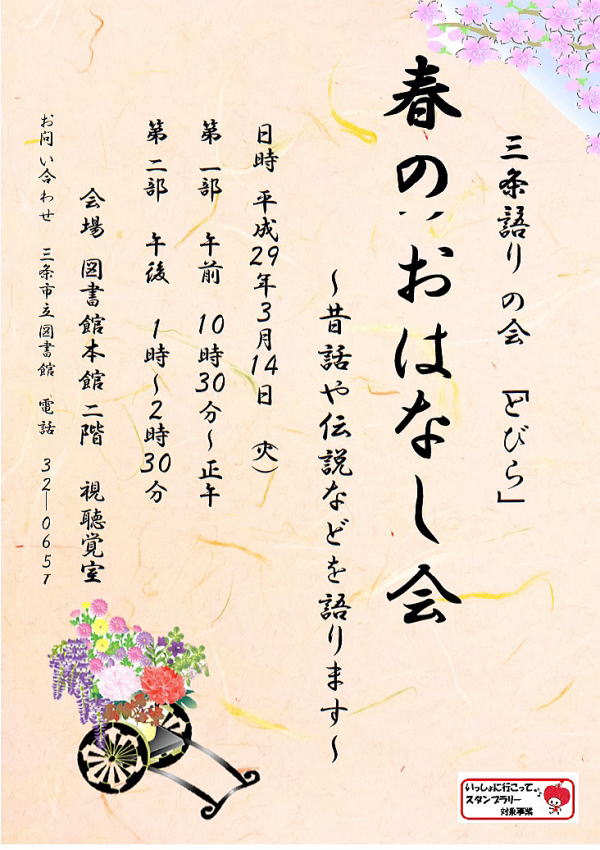 三条語りの会 「とびら」
春の”おはなし会
～昔話や伝説などを語ります～
日時 平成29年3月14日 （火）
第一部 午前 10時30分～正午
第二部 午後 1時～2時30分
会場 図書館本館二階 視聴覚室
お問い合わせ 三条市立図書館 電話 32―0657
いっしょに行こって♪
スタンプラリー
対象事業